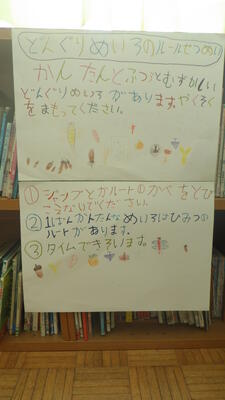 どんぐりめいろのルールせつめい
かんたんとふつうとむずかしい
どんぐりめいろがあります。やくそく
をまもってください。
①ジャンプとかルートのかべをとび
こえないでください。
②1ばんかんたんなめいろはひみつの
ルートがあります。
③タイムできろいます。